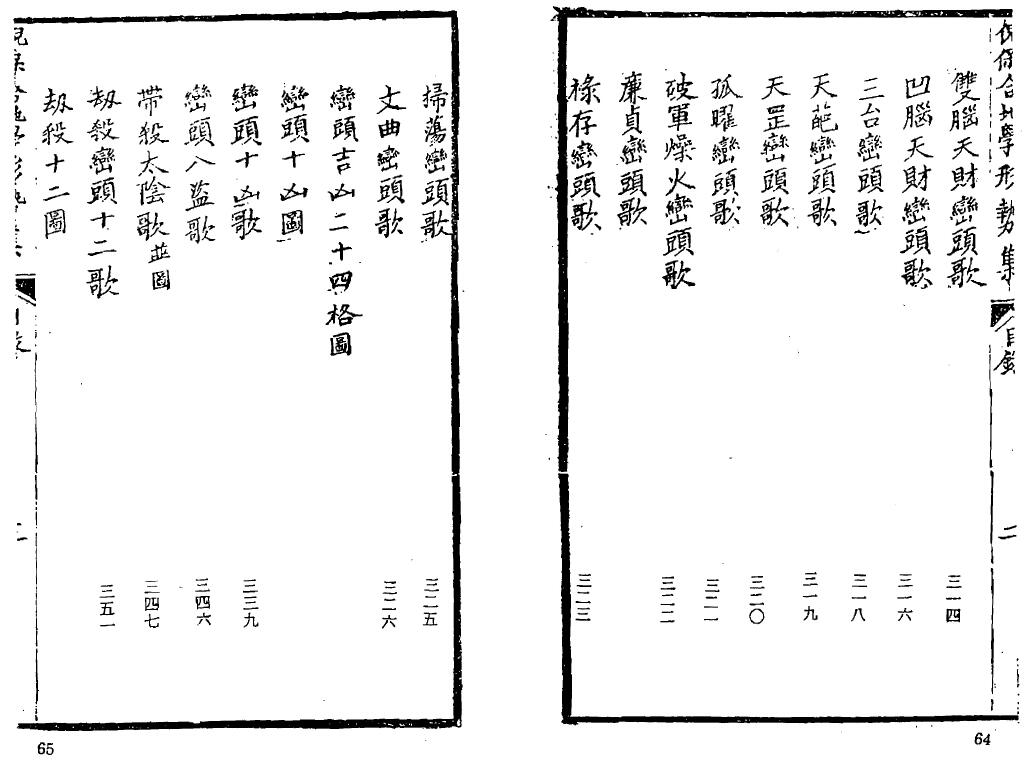 地學形勢集 目錄 二
雙腦天財巒頭歌 三一四
凹腦天財巒頭歌 三一六
三台巒頭歌 三一八
天葩巒頭歌 三一九
天罡巒頭歌 三二〇
孤曜巒頭歌 三二一
破軍燥火巒頭歌 三二二
廉貞巒頭歌
祿存巒頭歌 三二三
64
掃蕩巒頭歌 三二五
文曲巒頭歌 三二六
巒頭吉凶二十四格圖
巒頭十凶圖
巒頭十凶歌 三三九
巒頭八盜歌 三四六
帶殺太陰歌並圖 三四七
刼殺巒頭十二歌 三五一
刼殺十二圖
65